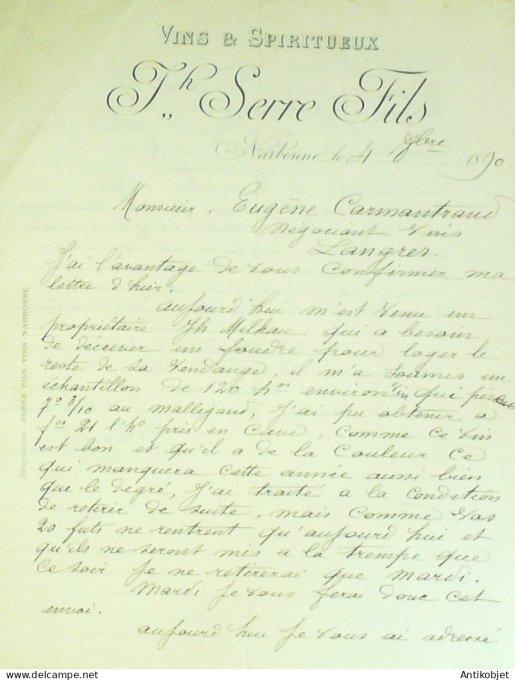 VINS & SPIRITUEUX
J.h Serre Fils
Narbonne, le 4 9bre 1890
Monsieur, Eugène Carmantrand
Négociant Vins
Langres.
J'ai l'avantage de vous confirmer ma
lettre d'hier.
aujourd'hui m'est venu un
propriétaire Th Milhau qui a besoin
de décuver un foudre pour loger le
reste de sa vendange, il m'a soumis un
échantillon de 120 hos environ vin qui pèse
7° 3/10 au mallegand, j'ai pu obtenir à
frs 21 l'ho pris en cave, comme ce vin
est bon et qu'il a de la couleur ce
qui manquera cette année aussi bien
que le dégré, j'ai traité à la condition
de retirer de suite, mais comme vos
20 futs ne rentrent qu'aujourd'hui et
qu'ils ne seront mis à la trempe que
ce soir je ne retirerai que mardi.
Mardi je vous ferai donc cet
envoi.
aujourd'hui je vous ai adressé
SERRE FILS VINS NARBONNE
www.delcampe.net
Antikobjet